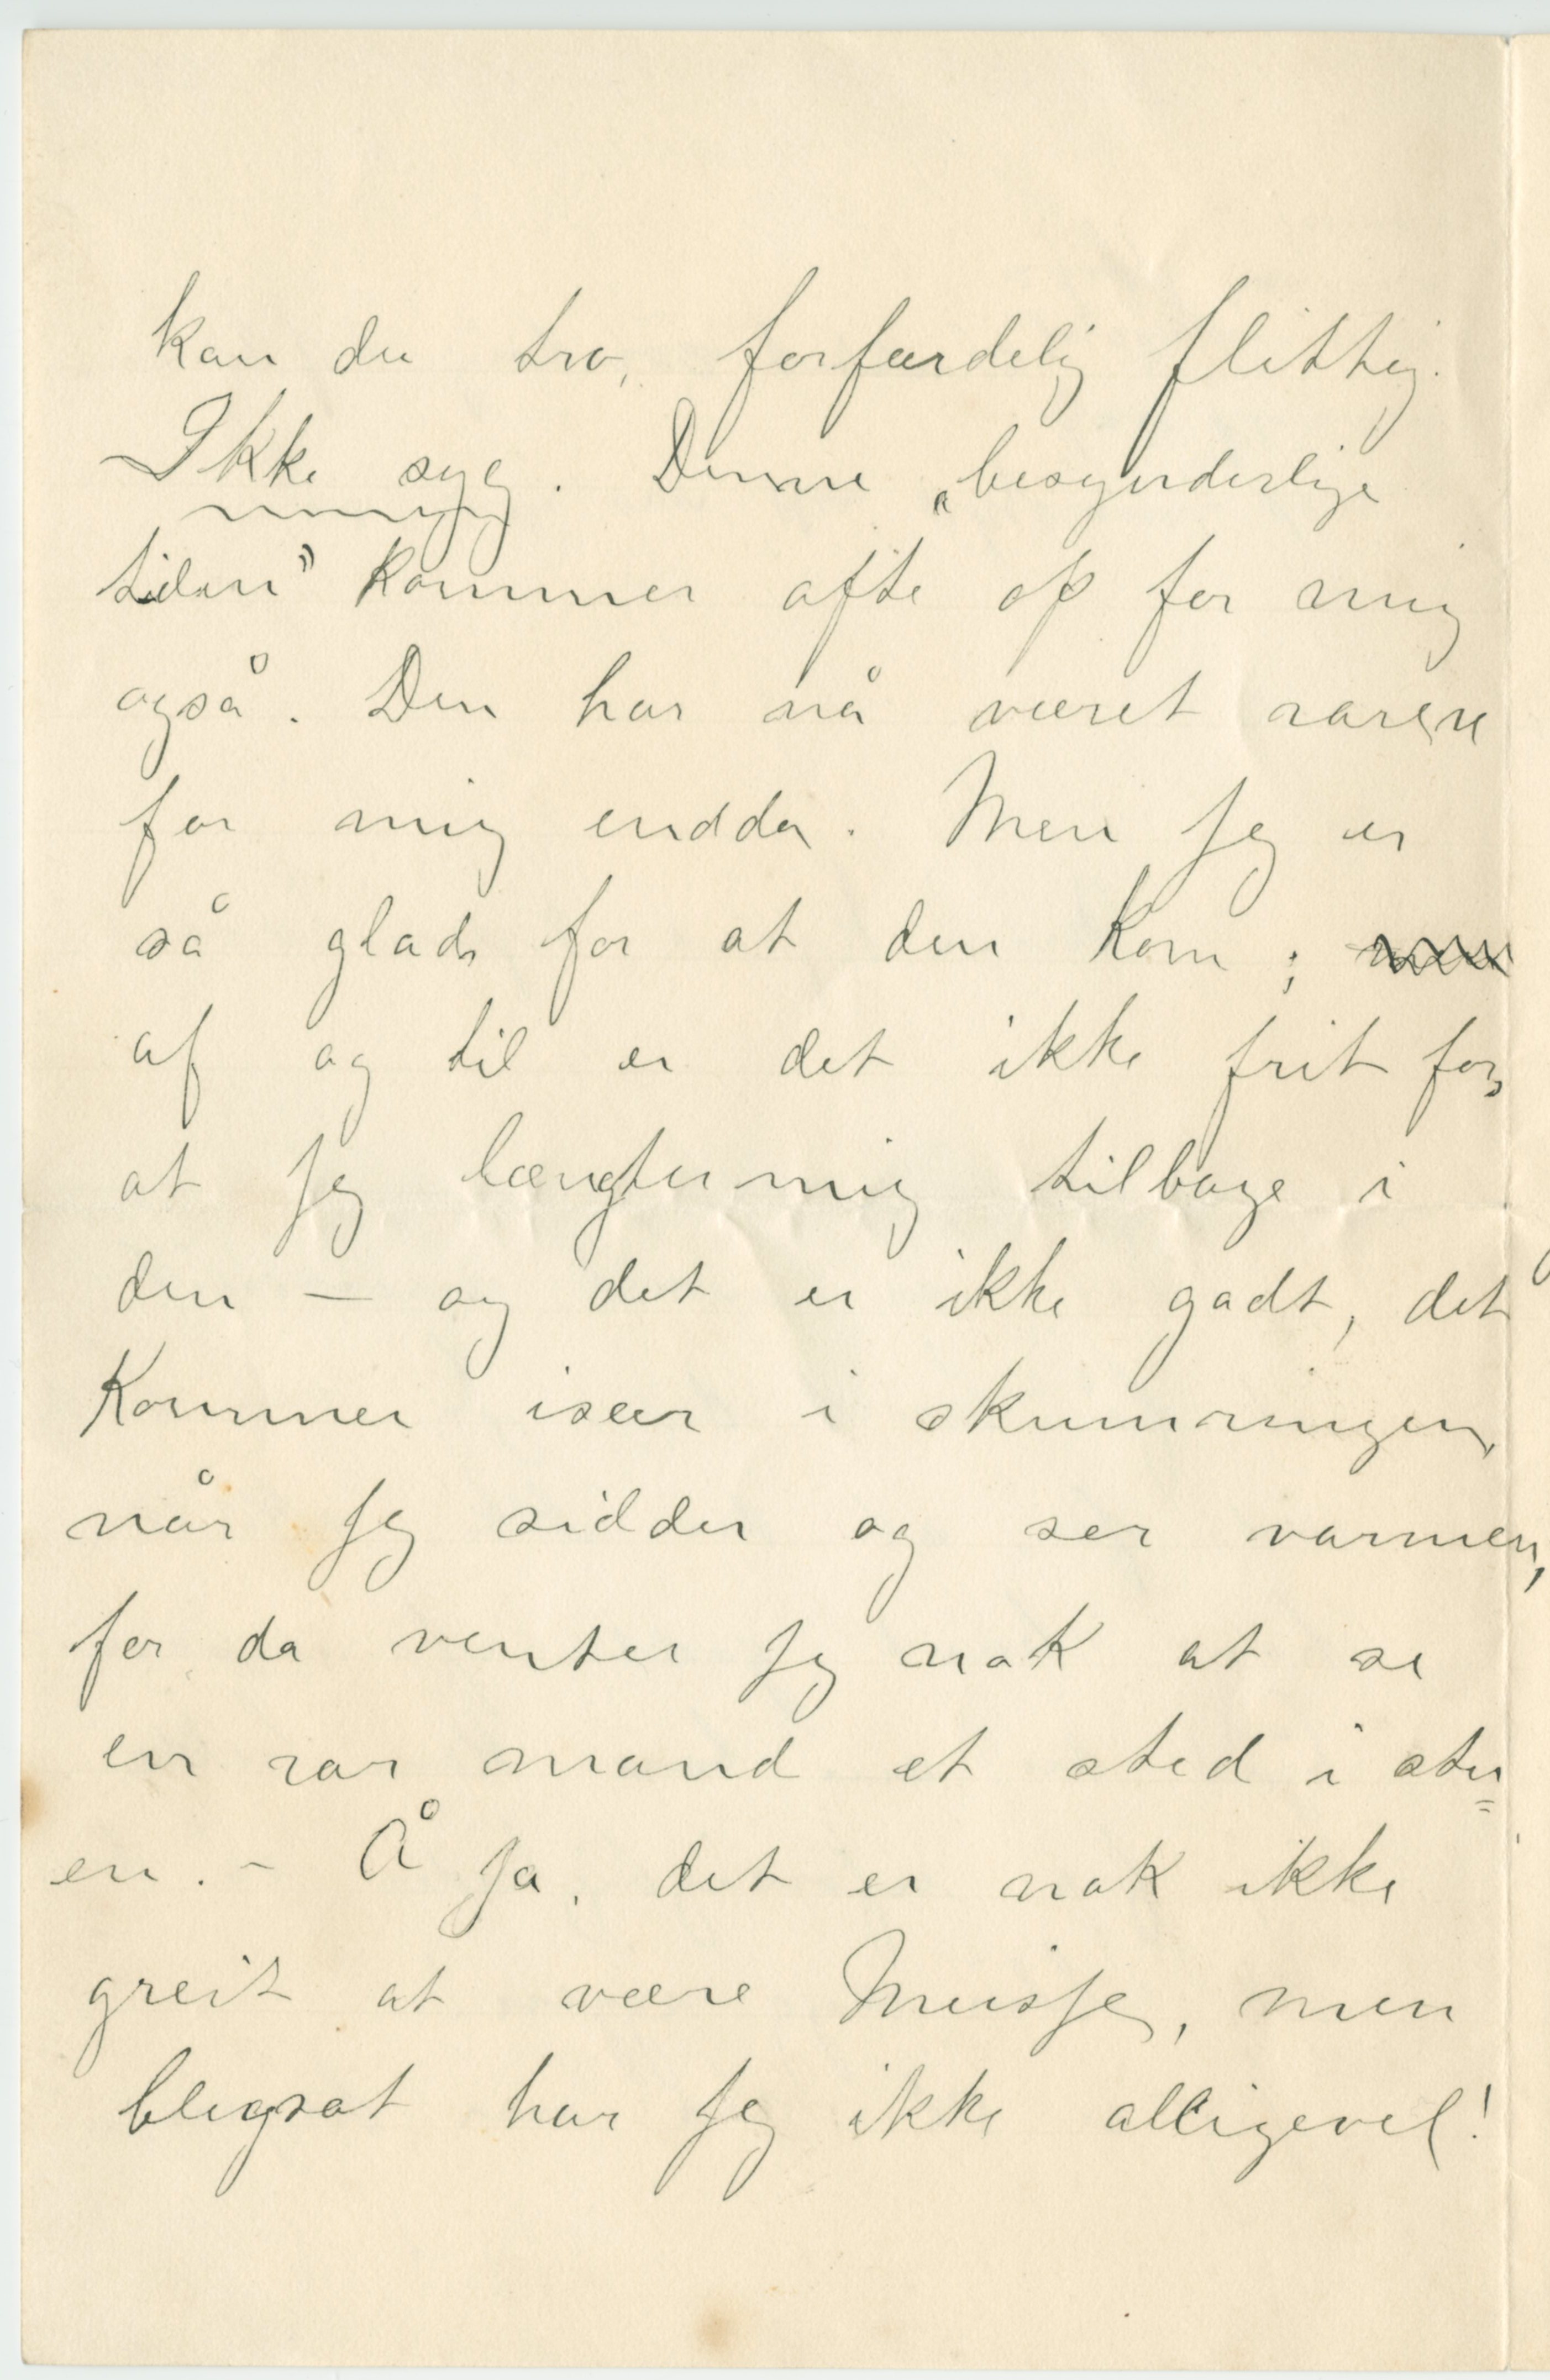 kan du tro, forfærdelig flittig.
Ikke syg. Denne „besynderlige
tiden” kommer ofte op for mig
også. Den har nå været rarere
for mig endda. Men jeg er
så glad for at den kom;
af og til er det ikke frit for,
at jeg længter mig tilbage i
den — og det er ikke godt, det
kommer især i skumringen,
når jeg sidder og ser varmen,
for da venter jeg nok at se
en rar mand et sted i stu=
en. - Å ja, det er nok ikke
greit at være Meisje, men
blegsot har jeg ikke alligevel!